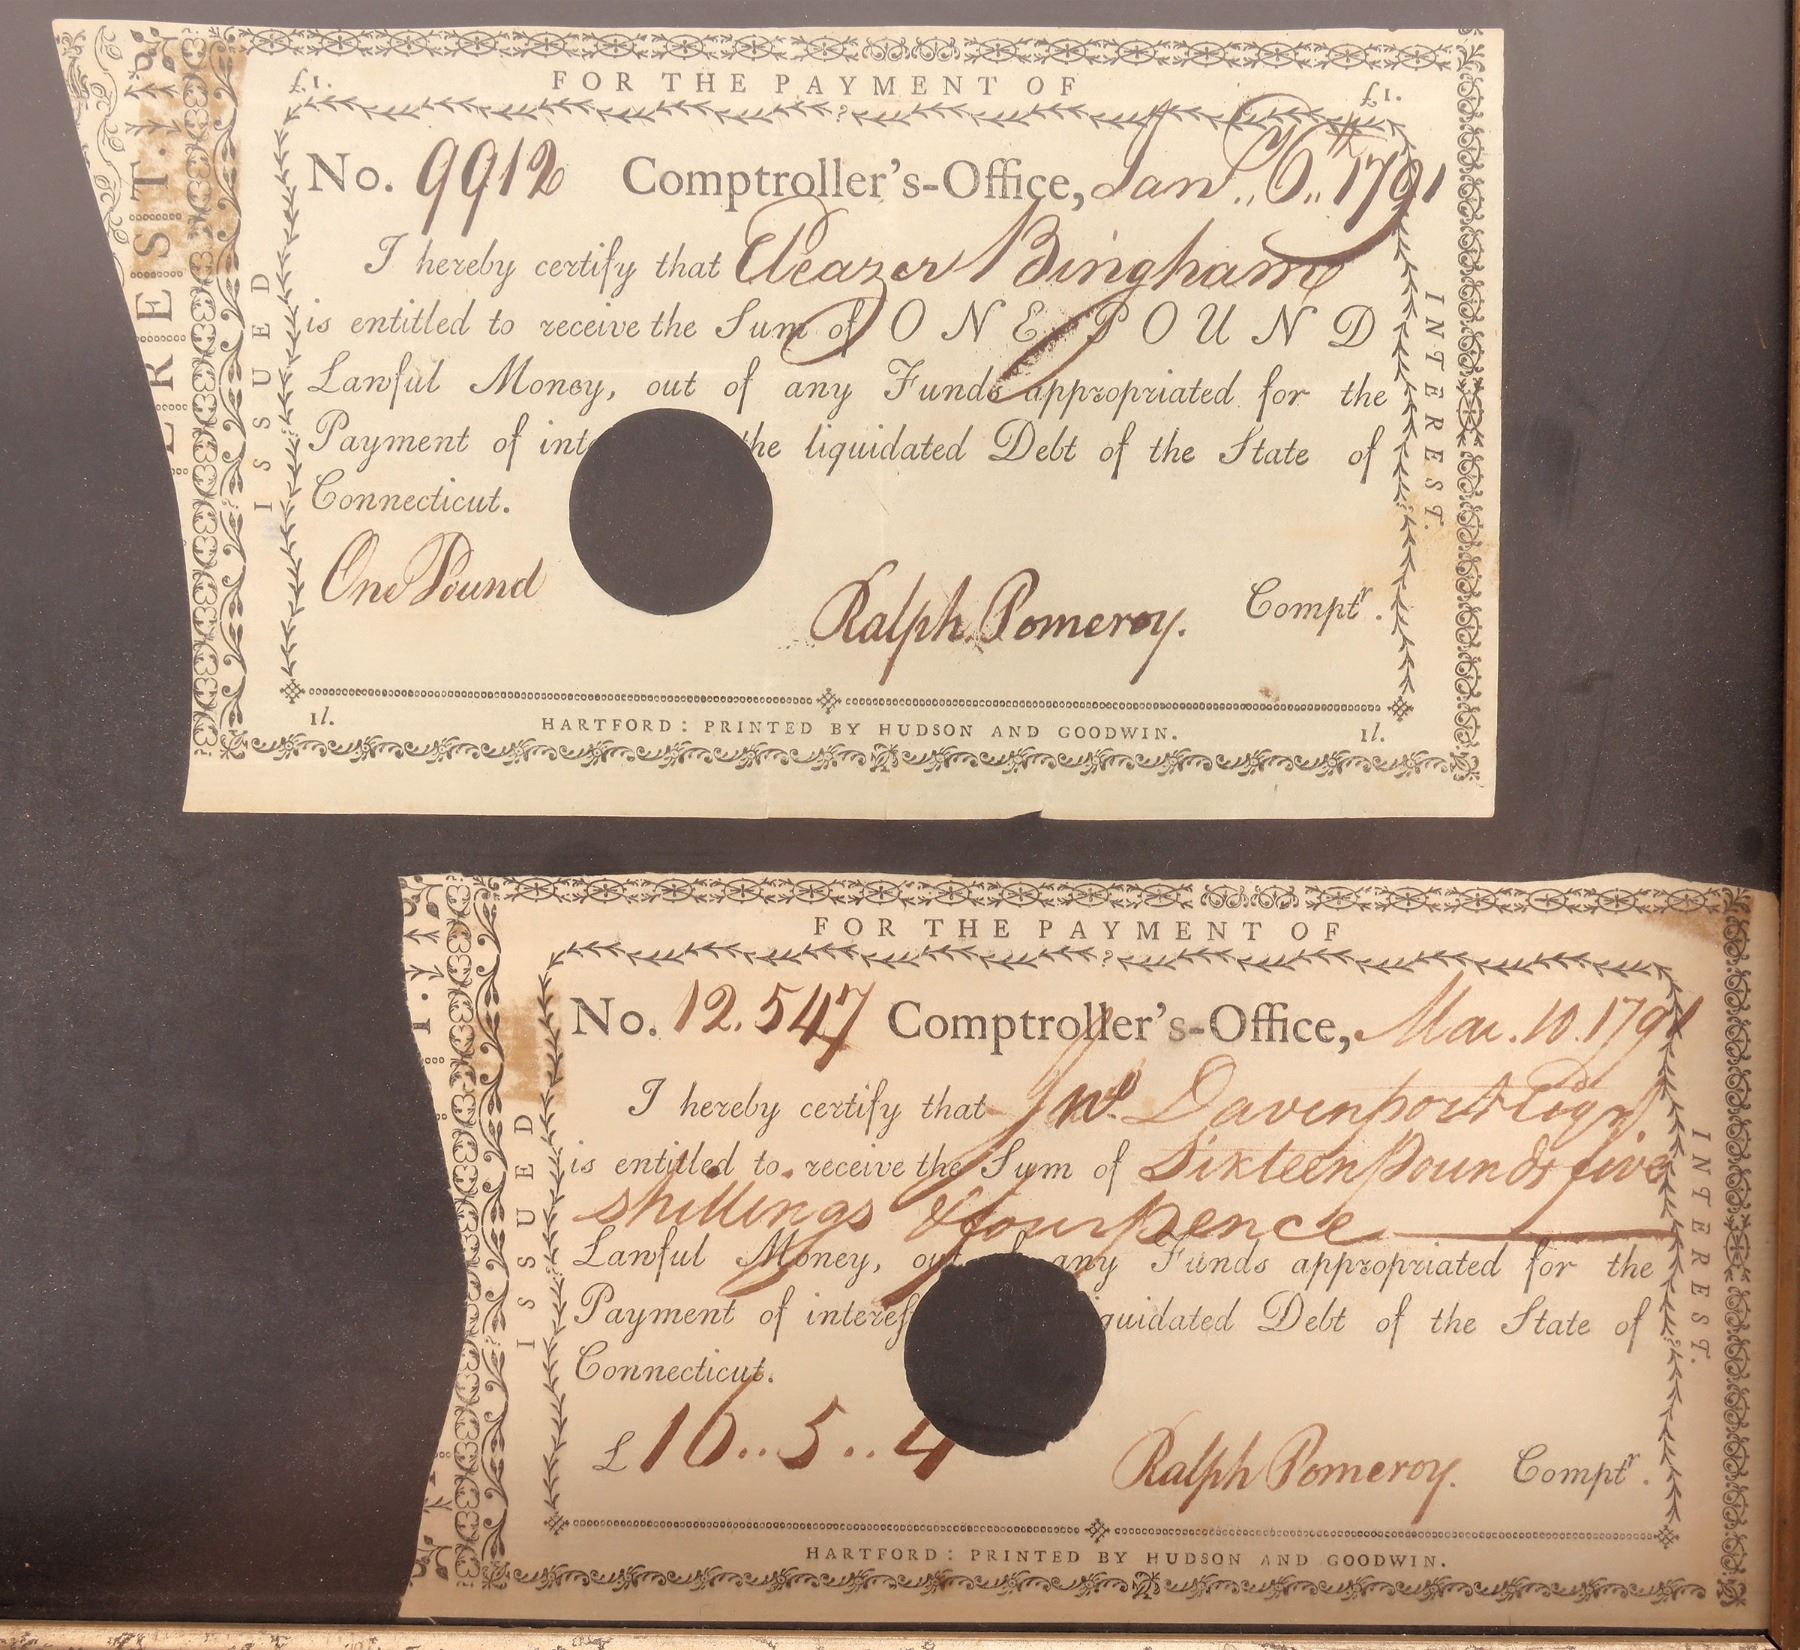 FOR THE PAYMENT OF
£1. £1.
No. 9912 Comptroller's-Office, Jany. 6th 1791
I hereby certify that Eleazer Bingham
is entitled to receive the Sum of ONE POUND
Lawful Money, out of any Funds appropriated for the
Payment of int the liquidated Debt of the State of
Connecticut.
One Pound
Ralph Pomeroy. Comptr.
1l. HARTFORD: PRINTED BY HUDSON AND GOODWIN. 1l.
ISSUED
INTEREST.
EREST.
FOR THE PAYMENT OF
No. 12.547 Comptroller's-Office, Mar. 10. 1791
I hereby certify that Jno. Davenport Esqr.
is entitled to receive the Sum of Sixteen Pounds five
shillings & four pence
Lawful Money, out of any Funds appropriated for the
Payment of interes iquidated Debt of the State of
Connecticut.
£ 16..5..4
Ralph Pomeroy. Comptr.
HARTFORD: PRINTED BY HUDSON AND GOODWIN.
ISSUED
INTEREST.
T.